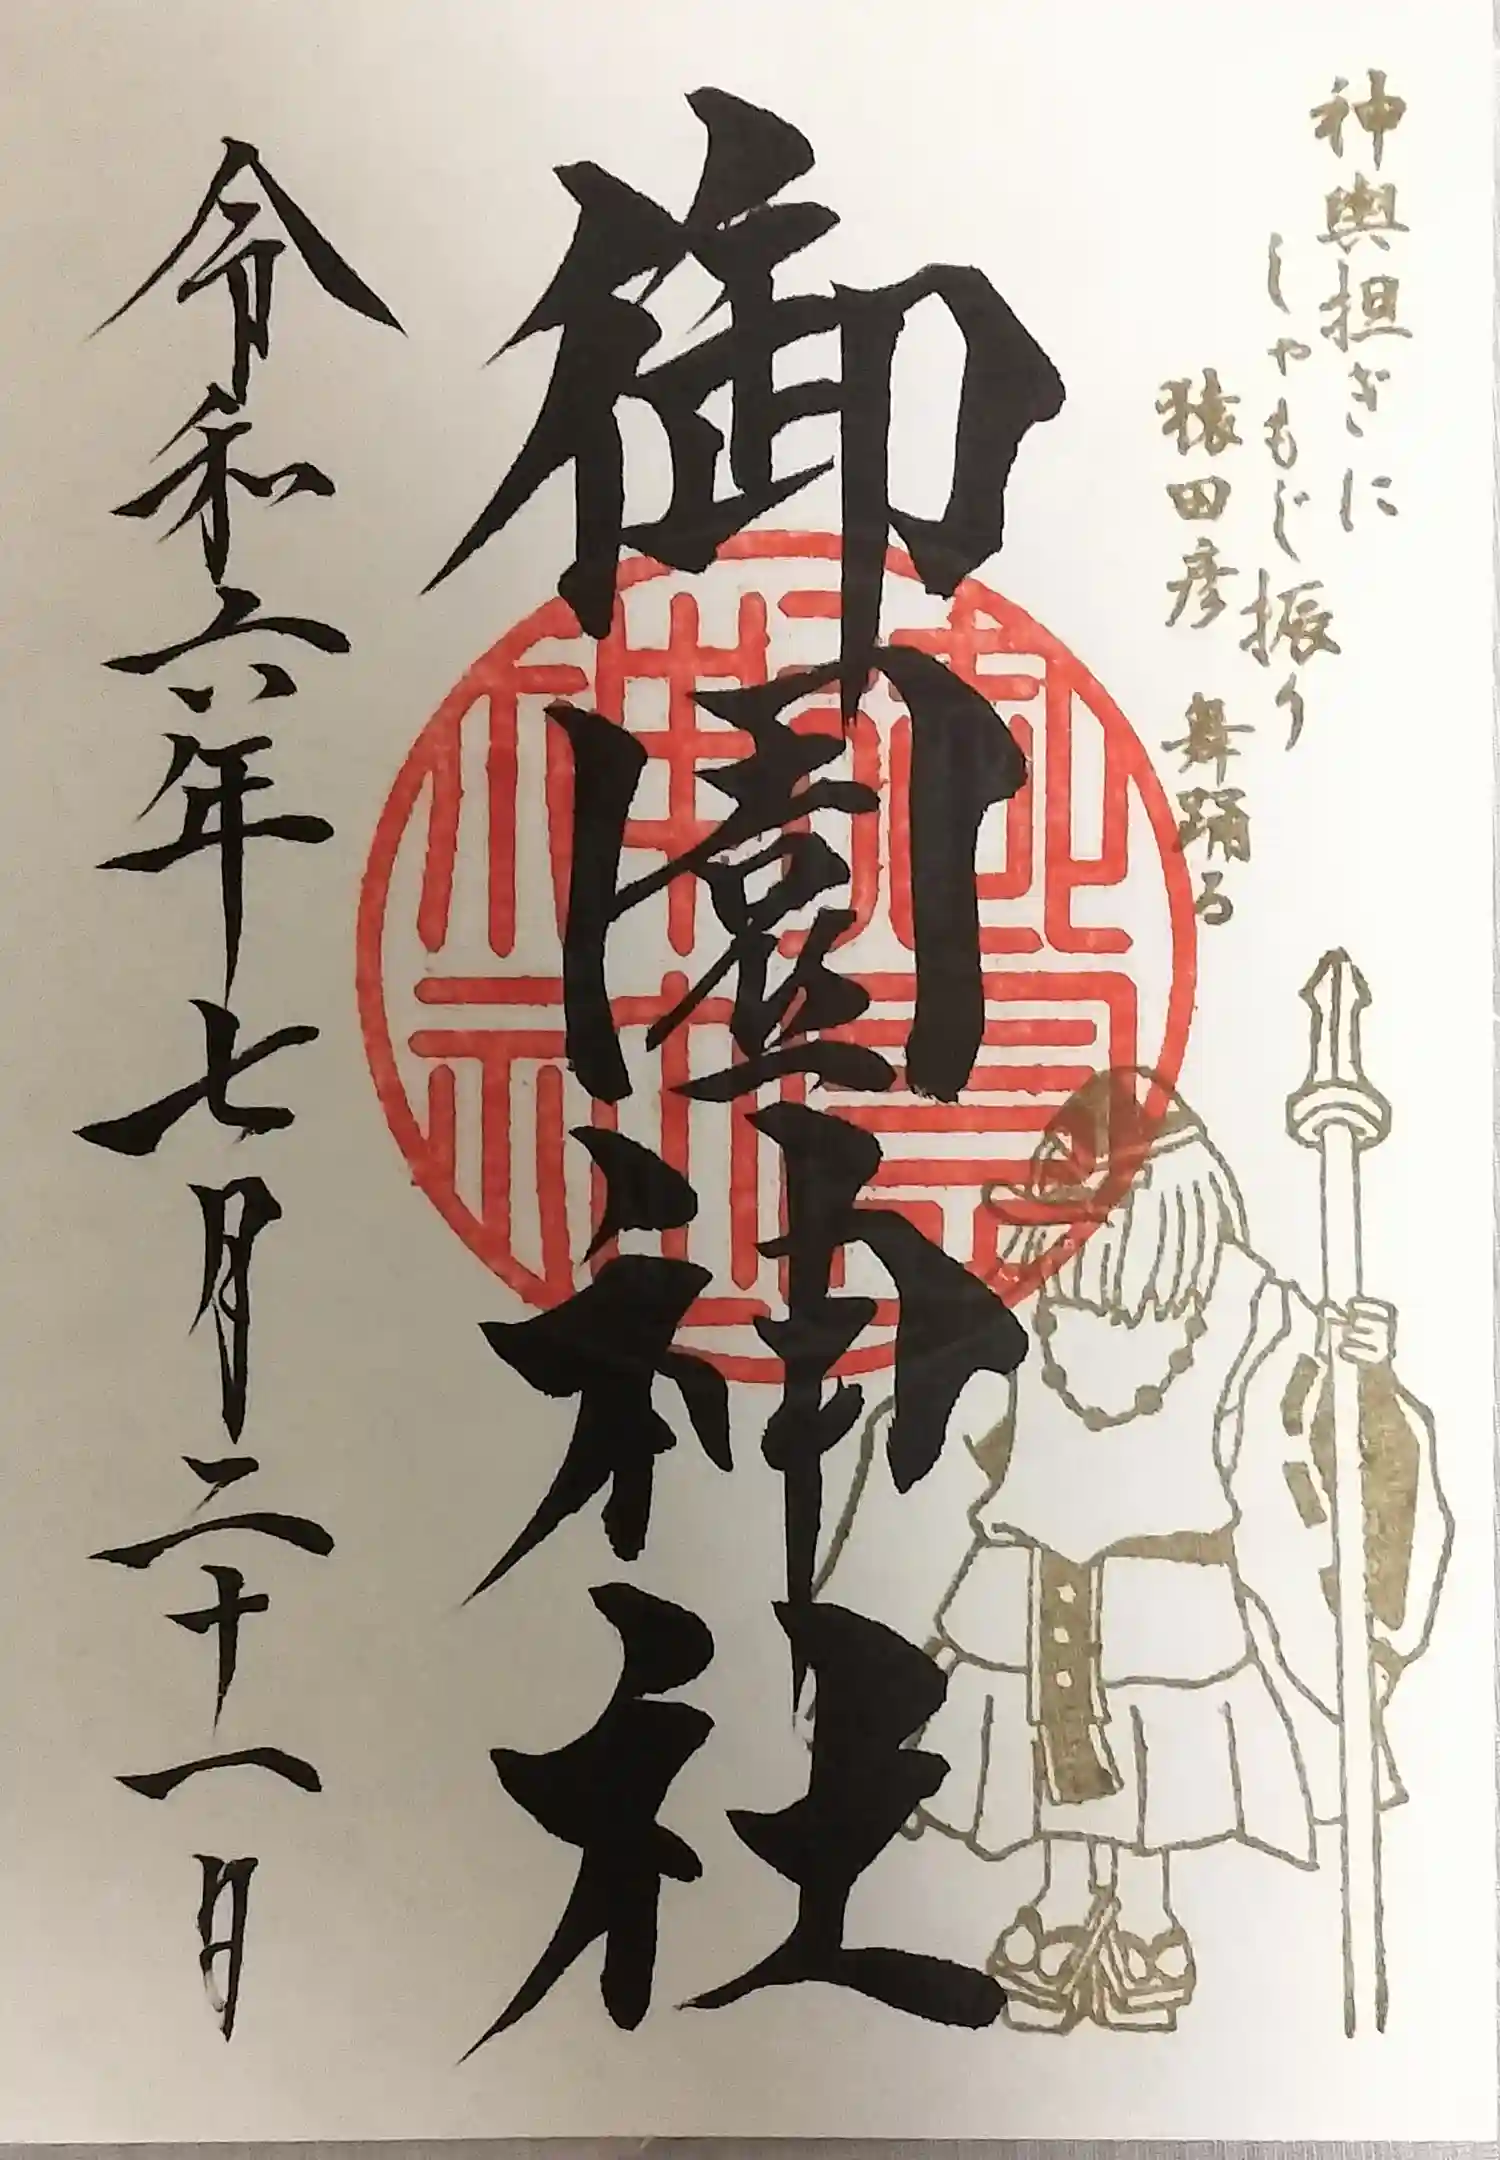 神輿担ぎに
しゃもじ振り
猿田彦 舞踊る
御園神社
令和六年七月二十一日